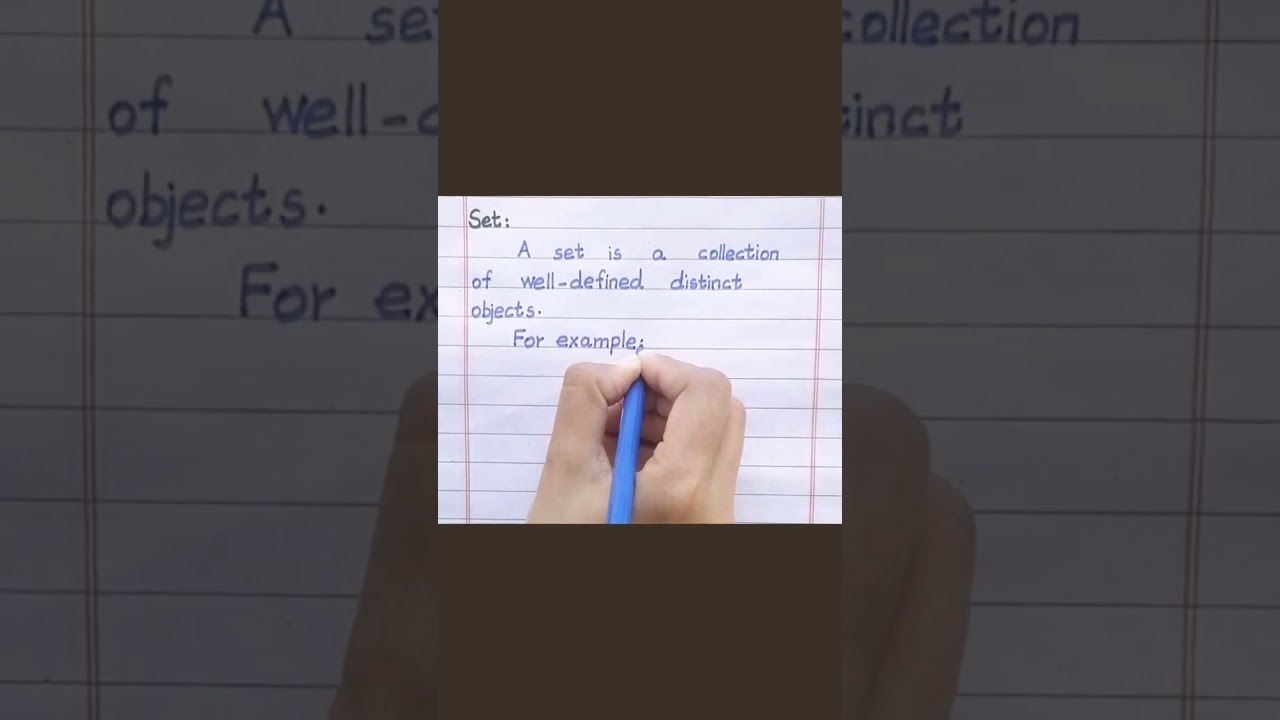 Set:
A set is a collection
of well-defined distinct
objects.
For example: